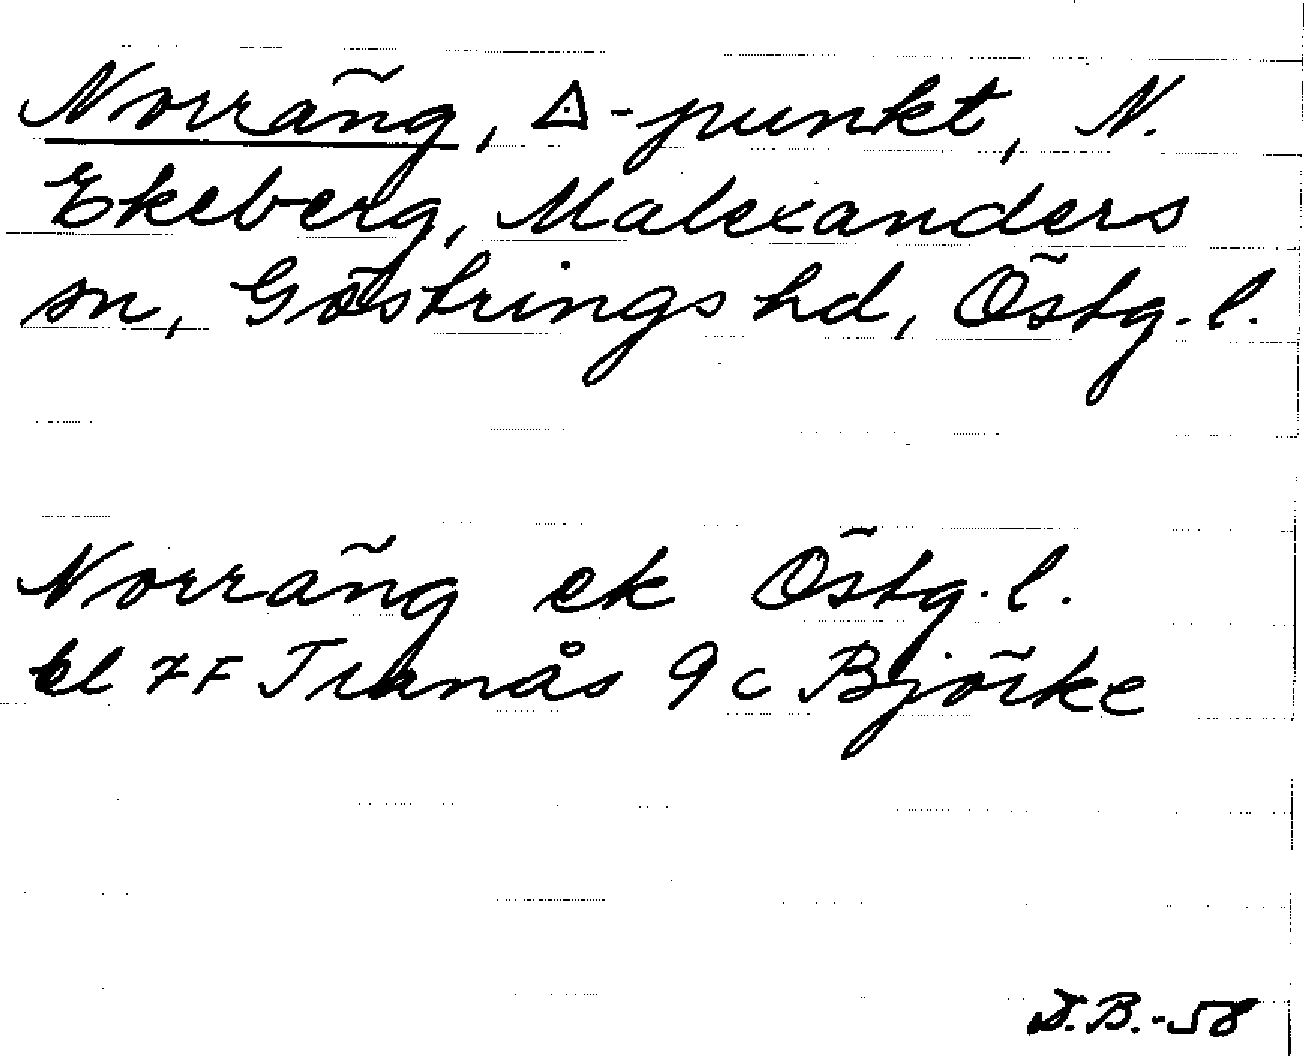 Norräng, △-punkt, N.
Ekeberg, Malexanders
sn, Göstrings hd, Östg. l.
Norräng ek Östg. l.
bl 7F Tranås 9c Björke
T.B.-58